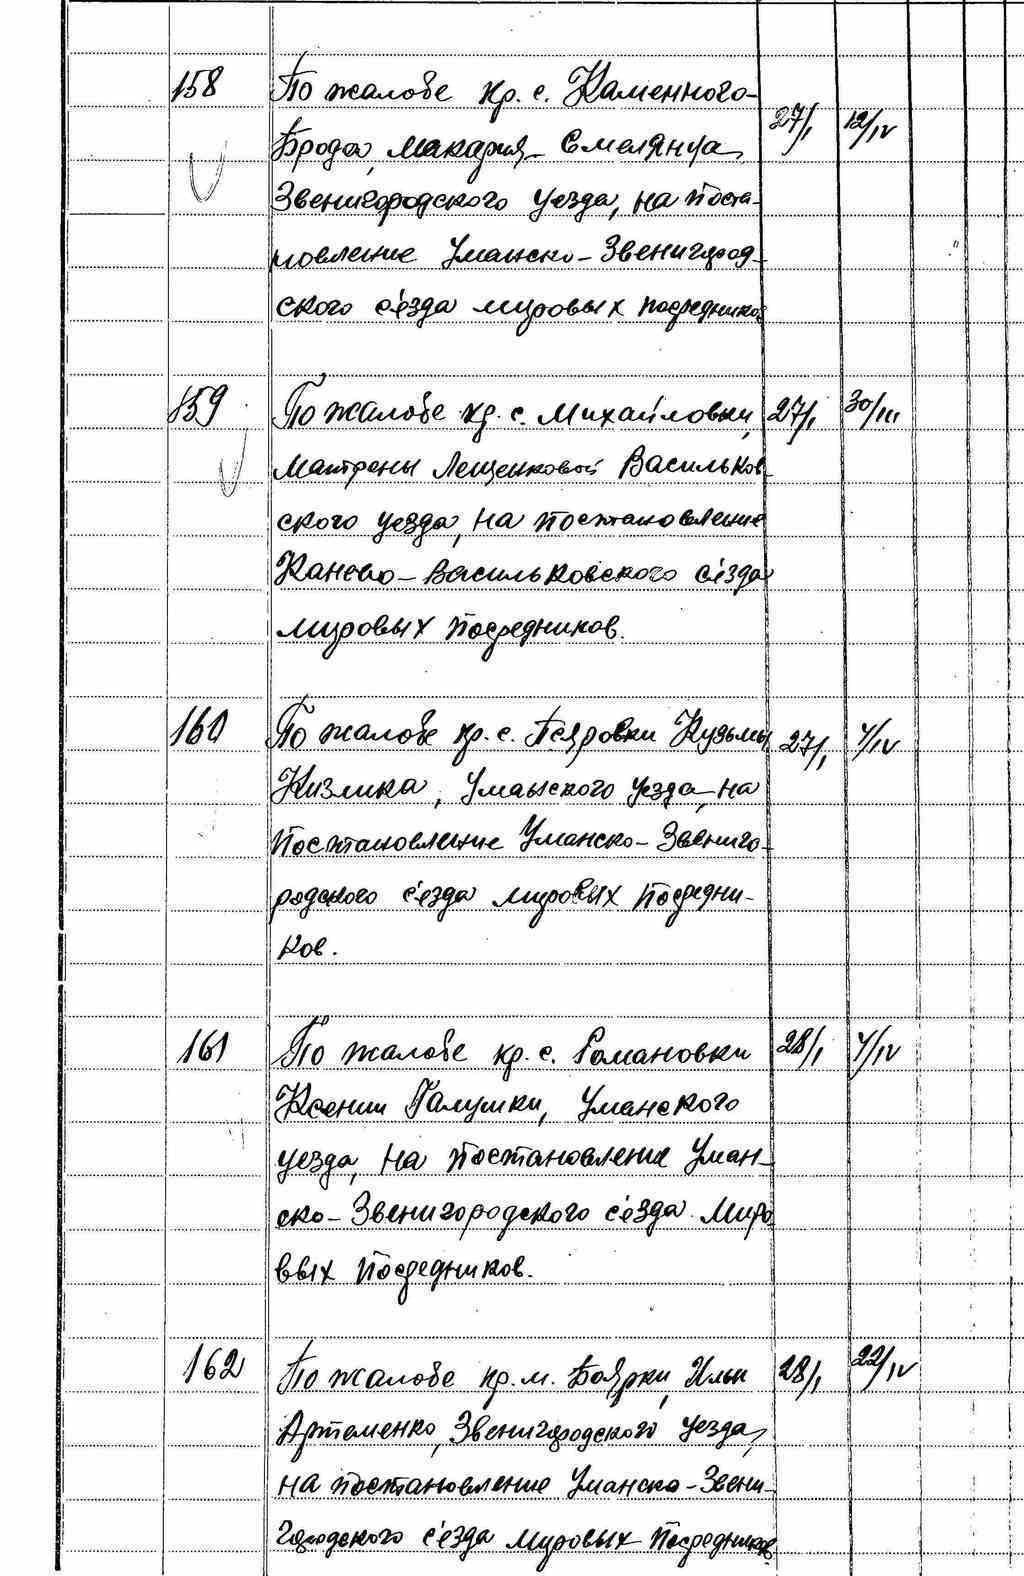 158 По жалобе кр. с. Каменного- 27/I 12/IV
Брода, Макария Смелянца,
Звенигородского уезда, на поста-
новление Уманско-Звенигород-
ского с'езда мировых посредников
159 По жалобе кр. с. Михайловки, 27/I 30/III
Матрены Лещенковой Васильков-
ского уезда, на постановление
Канево-Васильковского с'езда
мировых посредников.
160 По жалобе кр. с. Кузьмы 27/I 4/IV
Кизлика, Уманского уезда, на
постановление Уманско-Звениго-
родского с'езда мировых посредни-
ков.
161 По жалобе кр. с. Романовки 28/I 4/IV
Ксении Галушки, Уманского
уезда, на постановление Уман-
ско-Звенигородского с'езда миро
вых посредников.
162 По жалобе кр. м. Боярки, Ильи 28/I 22/IV
Артеменко, Звенигородского уезда,
на постановление Уманско-Звени-
городского с'езда мировых посредников